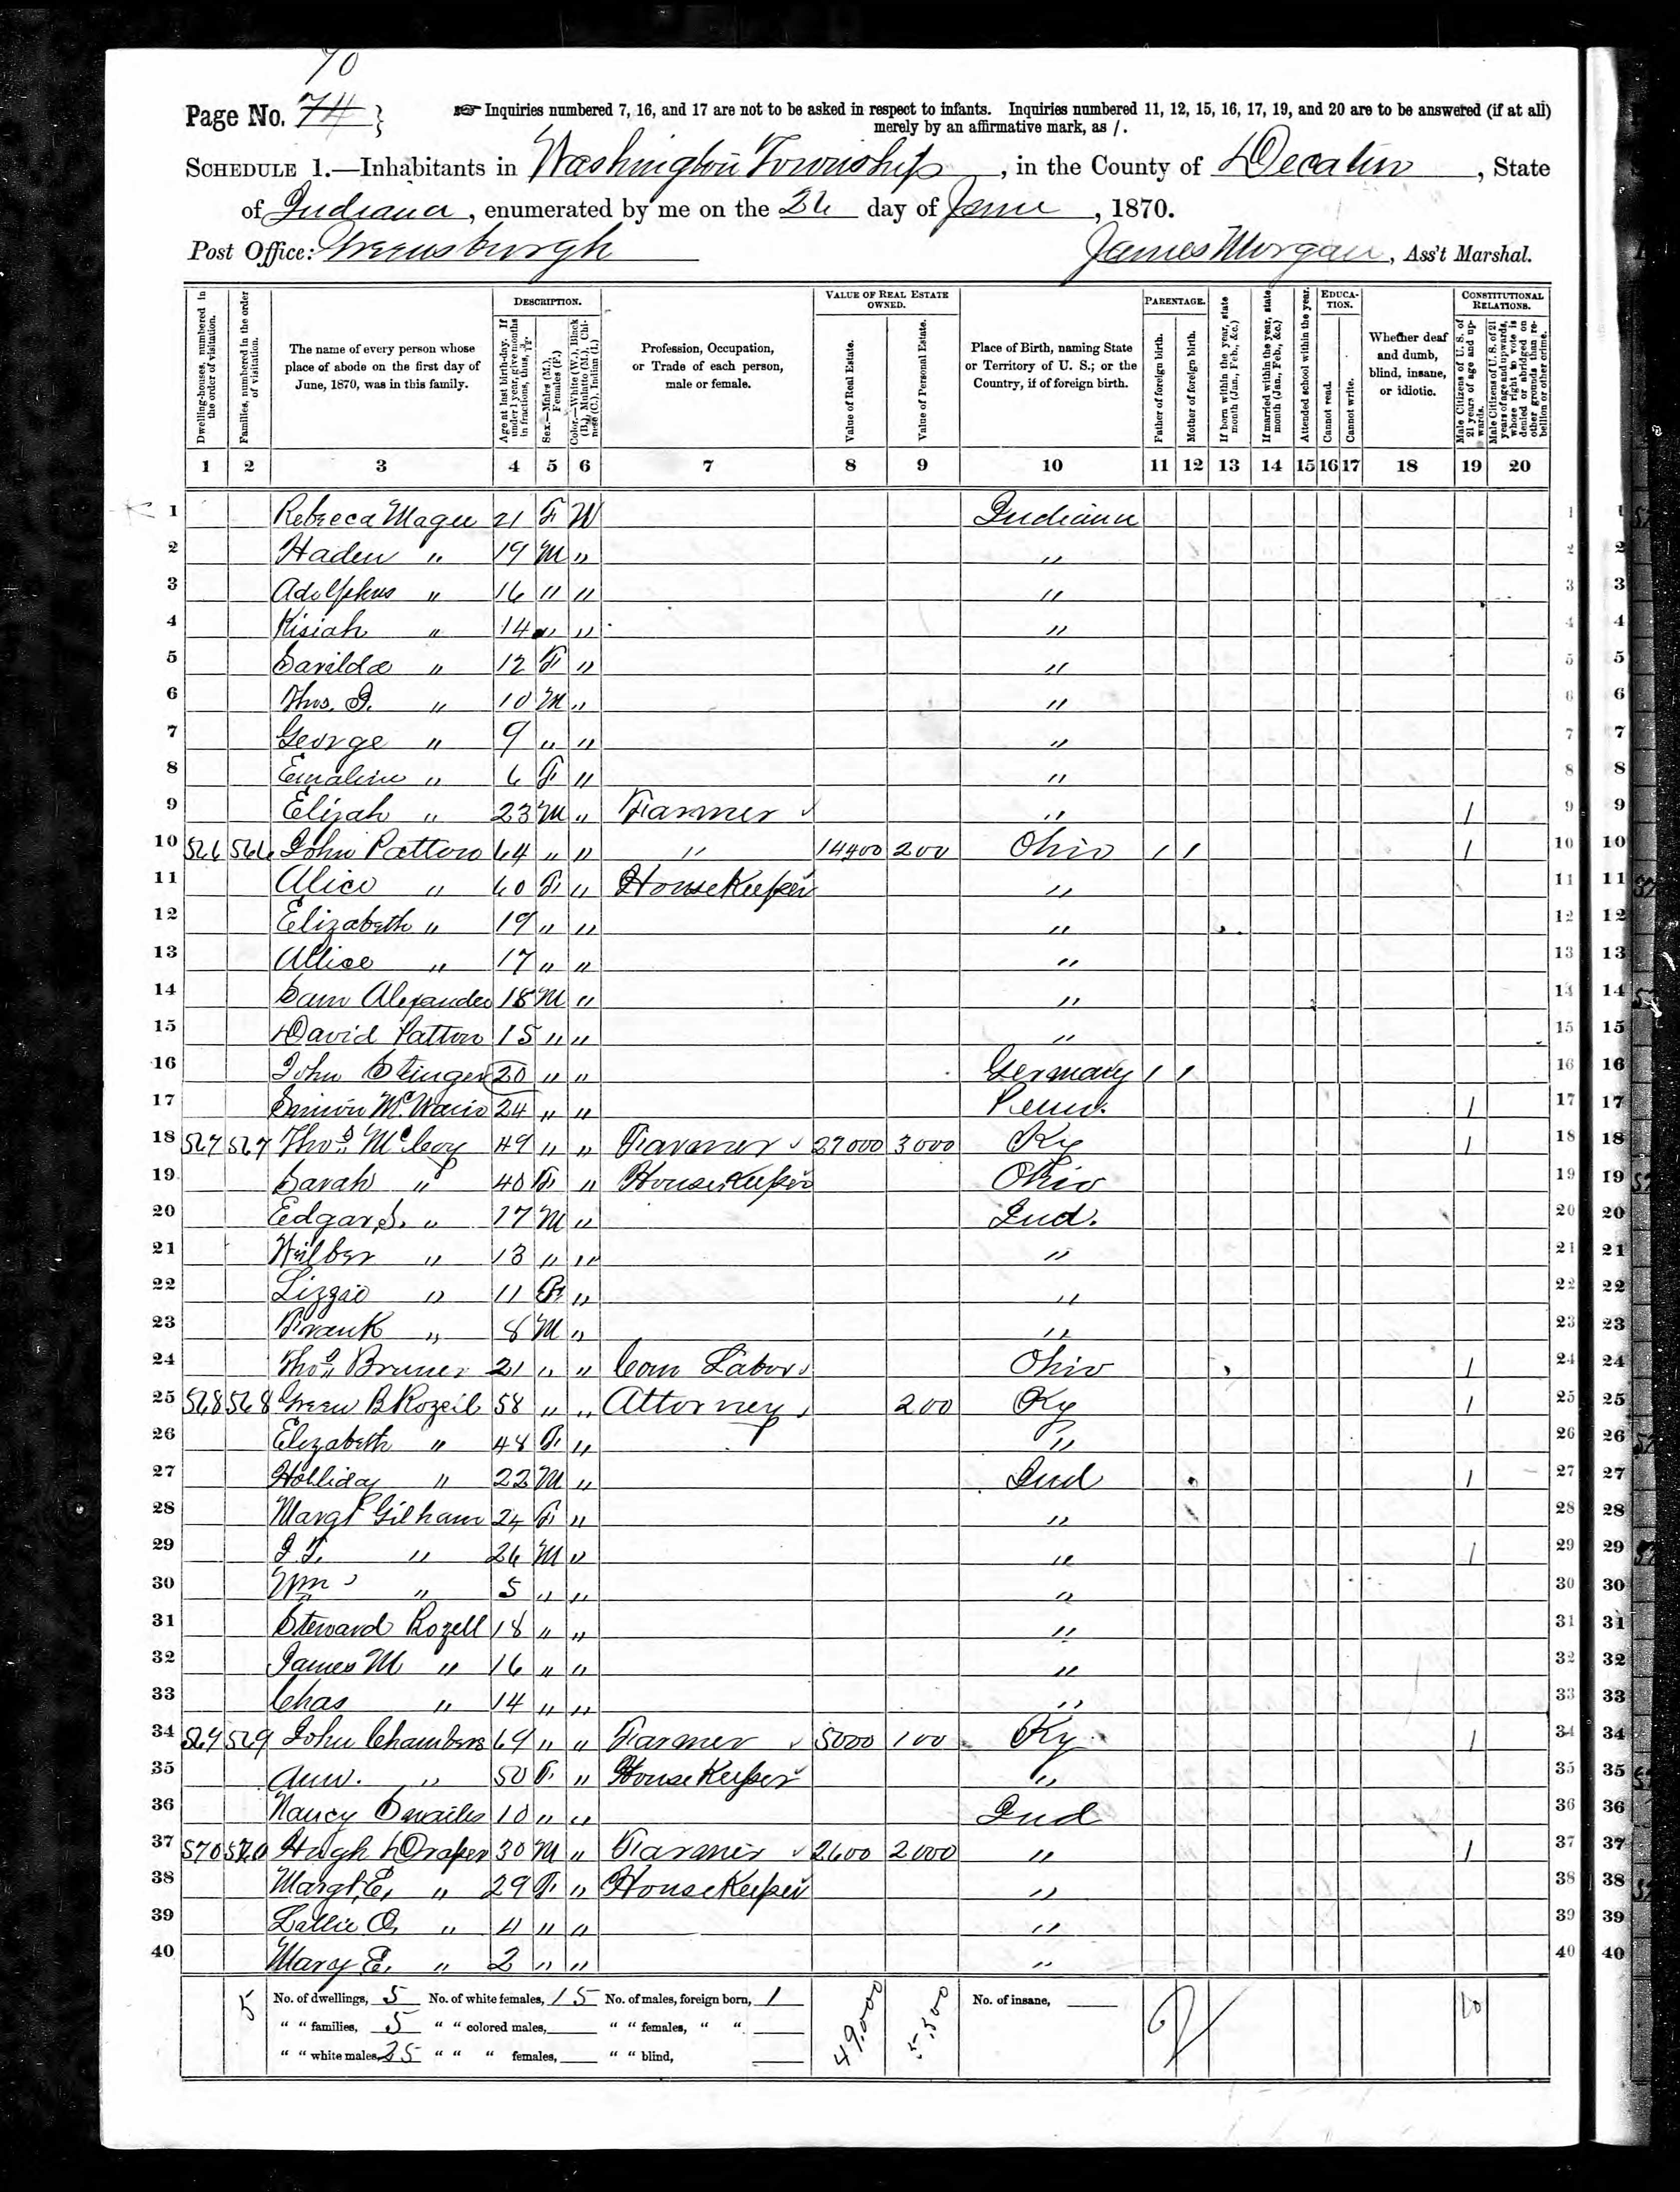 70
Page No. 74 }
☞ Inquiries numbered 7, 16, and 17 are not to be asked in respect to infants. Inquiries numbered 11, 12, 15, 16, 17, 19, and 20 are to be answered (if at all)
merely by an affirmative mark, as /.
SCHEDULE 1.—Inhabitants in Washington Township, in the County of Decatur, State
of Indiana, enumerated by me on the 26 day of June, 1870.
Post Office: Greensburgh
James Morgan, Ass't Marshal.
Dwelling-houses, numbered in the order of visitation.
Families, numbered in the order of visitation.
The name of every person whose place of abode on the first day of June, 1870, was in this family.
DESCRIPTION.
Age at last birth-day. If under 1 year, give months in fractions, thus, 3/12.
Sex.—Males (M.), Females (F.)
Color.—White (W.), Black (B.), Mulatto (M.), Chinese (C.), Indian (I.)
Profession, Occupation, or Trade of each person, male or female.
VALUE OF REAL ESTATE OWNED.
Value of Real Estate.
Value of Personal Estate.
Place of Birth, naming State or Territory of U. S.; or the Country, if of foreign birth.
PARENTAGE.
Father of foreign birth.
Mother of foreign birth.
If born within the year, state month (Jan., Feb., &c.)
If married within the year, state month (Jan., Feb., &c.)
Attended school within the year.
EDUCATION.
Cannot read.
Cannot write.
Whether deaf and dumb, blind, insane, or idiotic.
CONSTITUTIONAL RELATIONS.
Male Citizens of U. S. of 21 years of age and upwards.
Male Citizens of U. S. of 21 years of age and upwards, whose right to vote is denied or abridged on other grounds than rebellion or other crime.
1 2 3 4 5 6 7 8 9 10 11 12 13 14 15 16 17 18 19 20
1 Rebecca Magee 21 F W Indiana 1
2 Haden " 19 M " " 2
3 Adolphus " 16 " " " 3
4 Kisiah " 14 " " " 4
5 Sarilda " 12 F " " 5
6 Thos. J. " 10 M " " 6
7 George " 9 " " " 7
8 Emaline " 6 F " " 8
9 Elijah " 23 M " Farmer " 1 9
10 566 566 John Patton 64 " " " 14400 200 Ohio / / 1 10
11 Alice " 60 F " HouseKeeper " 11
12 Elizabeth " 19 " " " 12
13 Allice " 17 " " " 13
14 Sam Alexander 18 M " " 14
15 David Patton 15 " " " 15
16 John Stinger 20 " " Germany / / 16
17 24 " " Penn. 1 17
18 567 567 Thos McCoy 49 " " Farmer 27000 3000 Ky 1 18
19 Sarah " 40 F " HouseKeeper Ohio 19
20 Edgar S. " 17 M " Ind. 20
21 Wilber " 13 " " " 21
22 Lizzie " 11 F " " 22
23 Frank " 8 M " " 23
24 Thos Bruner 21 " " Com Labor Ohio 1 24
25 568 568 Green B Rozell 58 " " Attorney 200 Ky 1 25
26 Elizabeth " 48 F " " 26
27 Holliday " 22 M " Ind 1 27
28 Margt Gilham 24 F " " 28
29 J T. " 26 M " " 1 29
30 Wm " 5 " " " 30
31 Steward Rozell 18 " " " 31
32 James M " 16 " " " 32
33 Chas " 14 " " " 33
34 569 569 John Chambers 69 " " Farmer 5000 100 Ky 1 34
35 Ann. " 50 F " HouseKeeper " 35
36 Nancy Smailes 10 " " Ind 36
37 570 570 Hugh Draper 30 M " Farmer 2600 2000 " 1 37
38 Margt E. " 29 F " HouseKeeper " 38
39 Lallie O. " 4 " " " 39
40 Mary E. " 2 " " " 40
5 No. of dwellings, 5 No. of white females, 15 No. of males, foreign born, 1 49,000 5,500 No. of insane, 10
" " families, 5 " " colored males, " " females, " "
" " white males, 25 " " " females, " " blind,